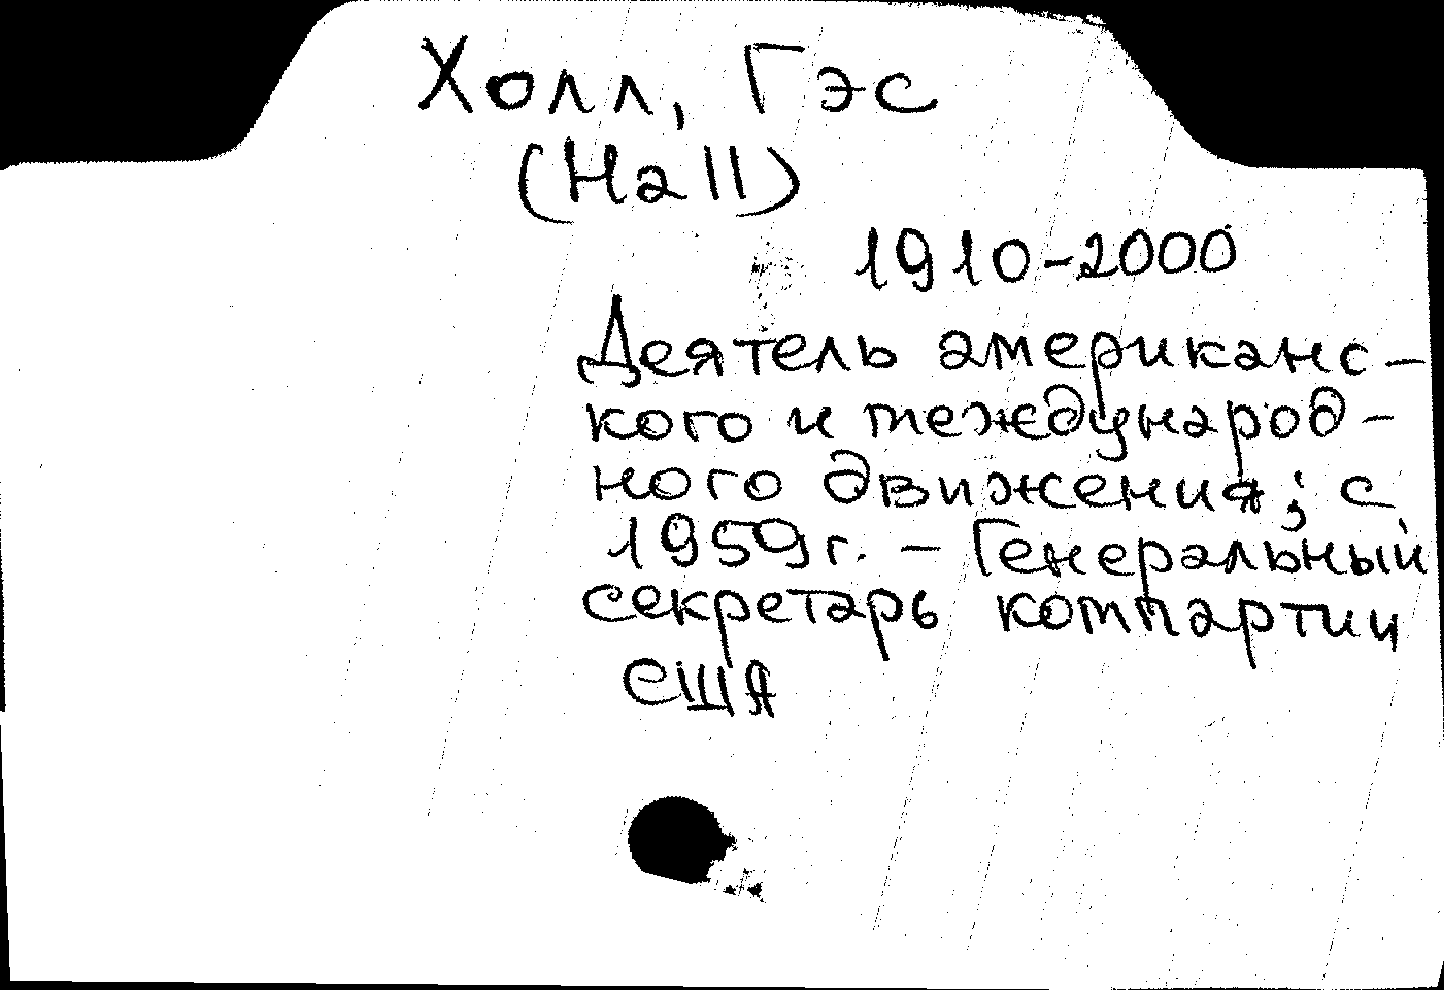 Холл, Гэс
(Hall)
1910-2000
Деятель американс-
кого и международ-
ного движения; с
1959г. - Генеральный
секретарь компартии
США